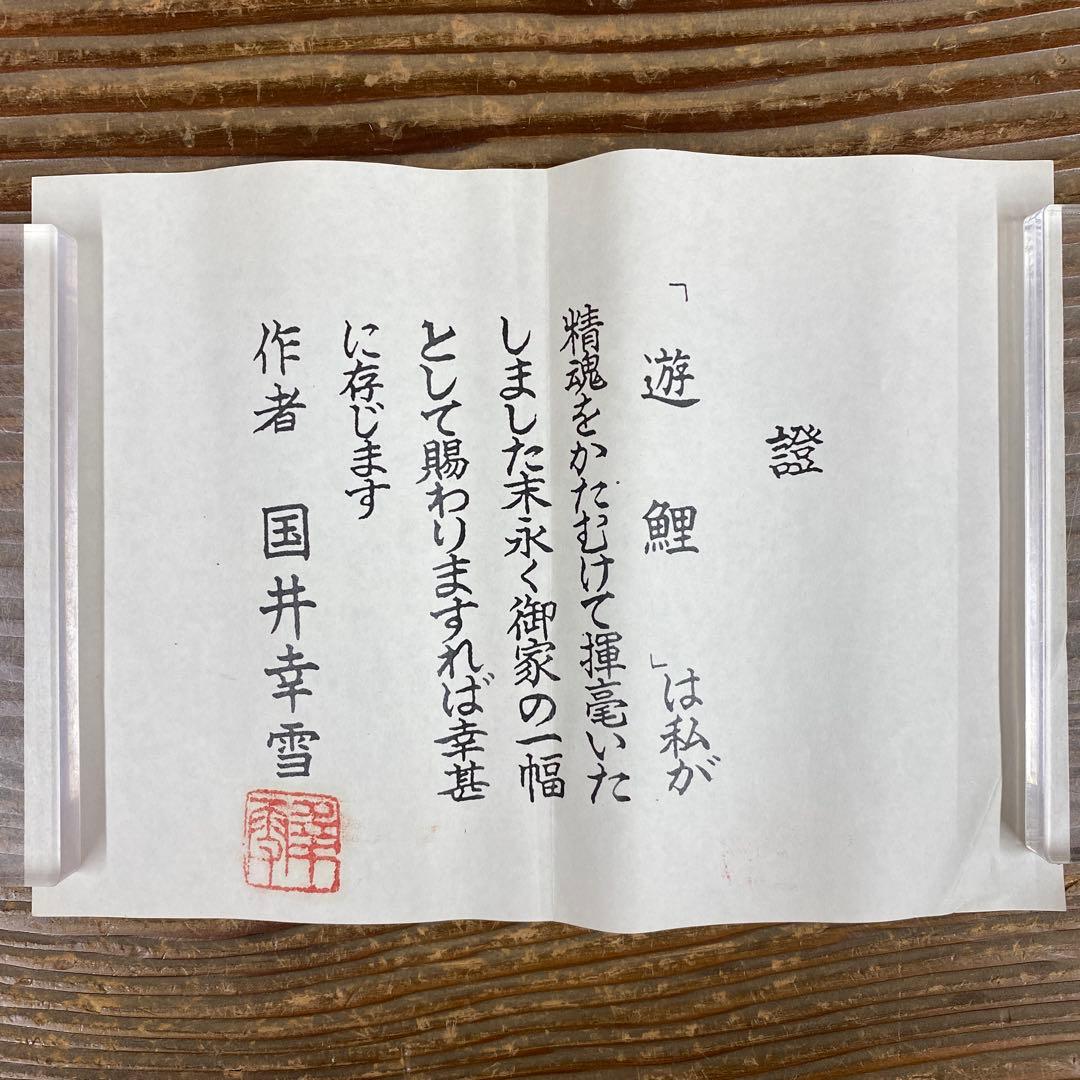 證
「遊鯉」は私が
精魂をかたむけて揮毫いた
しました末永く御家の一幅
として賜わりますれば幸甚
に存じます
作者 国井幸雪